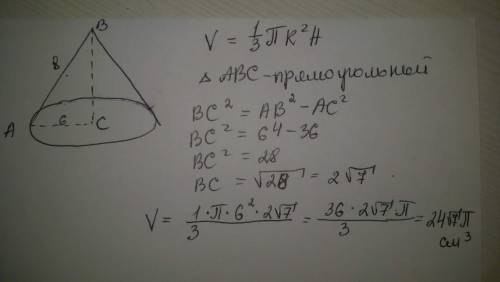 B
8
A
6
C
V = 1/3 П R² H
△ ABC - прямоугольный
BC² = AB² - AC²
BC² = 64 - 36
BC² = 28
BC = √28 = 2√7 .
V = 1·П·6²·2√7 / 3 = 36·2√7 П / 3 = 24√7 П
см³